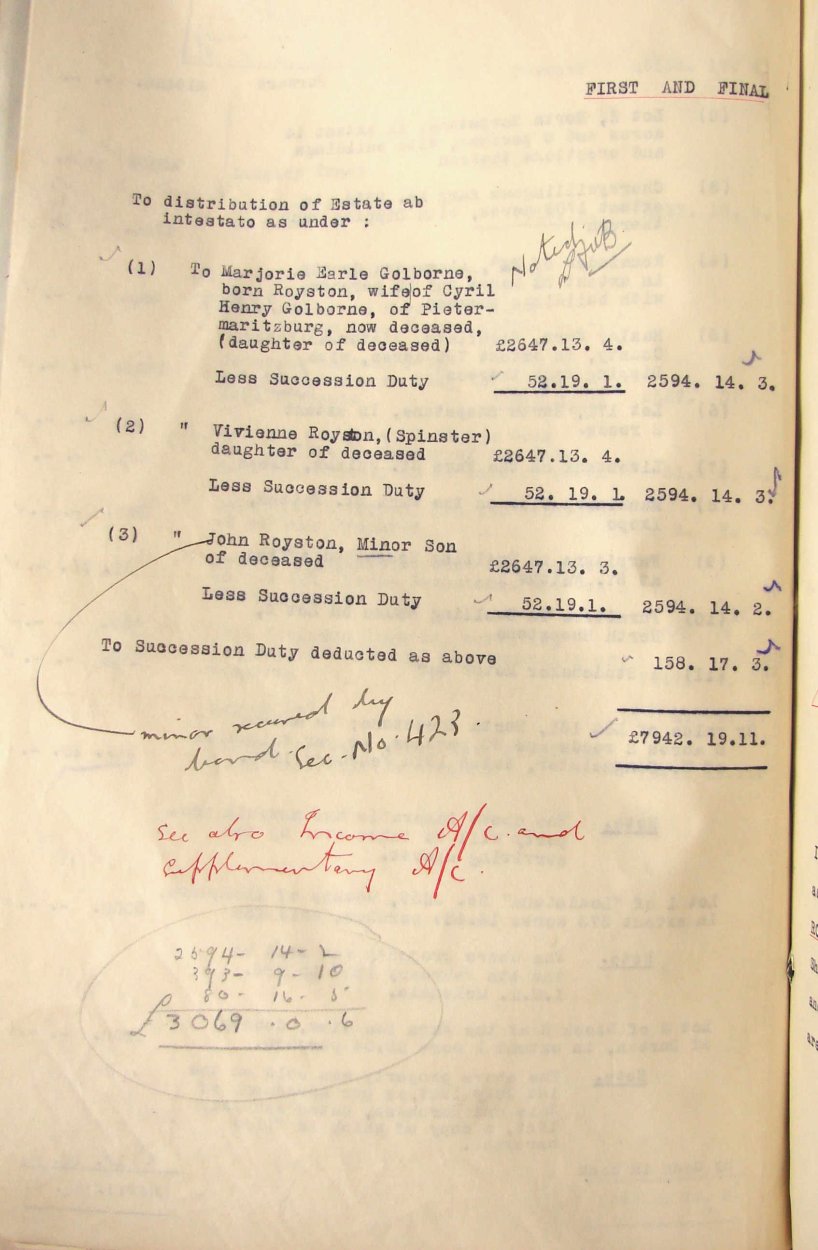 FIRST AND FINAL
To distribution of Estate ab
intestato as under :
(1) To Marjorie Earle Golborne,
born Royston, wife of Cyril
Henry Golborne, of Pieter-
maritzburg, now deceased,
(daughter of deceased) £2647.13. 4.
Less Succession Duty 52.19. 1. 2594. 14. 3.
Noted
(2) " Vivienne Royston, (Spinster)
daughter of deceased £2647.13. 4.
Less Succession Duty 52. 19. 1. 2594. 14. 3.
(3) " John Royston, Minor Son
of deceased £2647.13. 3.
Less Succession Duty 52.19.1. 2594. 14. 2.
To Succession Duty deducted as above 158. 17. 3.
£7942. 19.11.
minor secured by
bond. Sec. No. 423.
See also Income A/c. and
Supplementary A/c.
2594- 14- 2
393- 9- 10
80- 16- 5
£3069 . 0 . 6